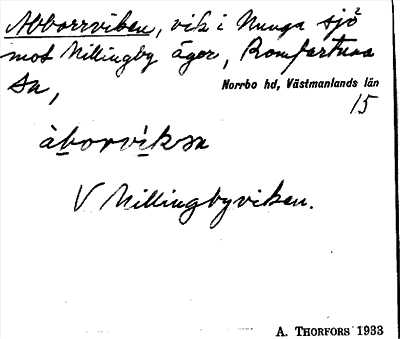 Abborrviken, vik i Nunga sjö
mot Nillingby ägor, Romfartuna
sn,
Norrbo hd, Västmanlands län
15
àborvìksn
V Nillingbyviken.
A. THORFORS 1933